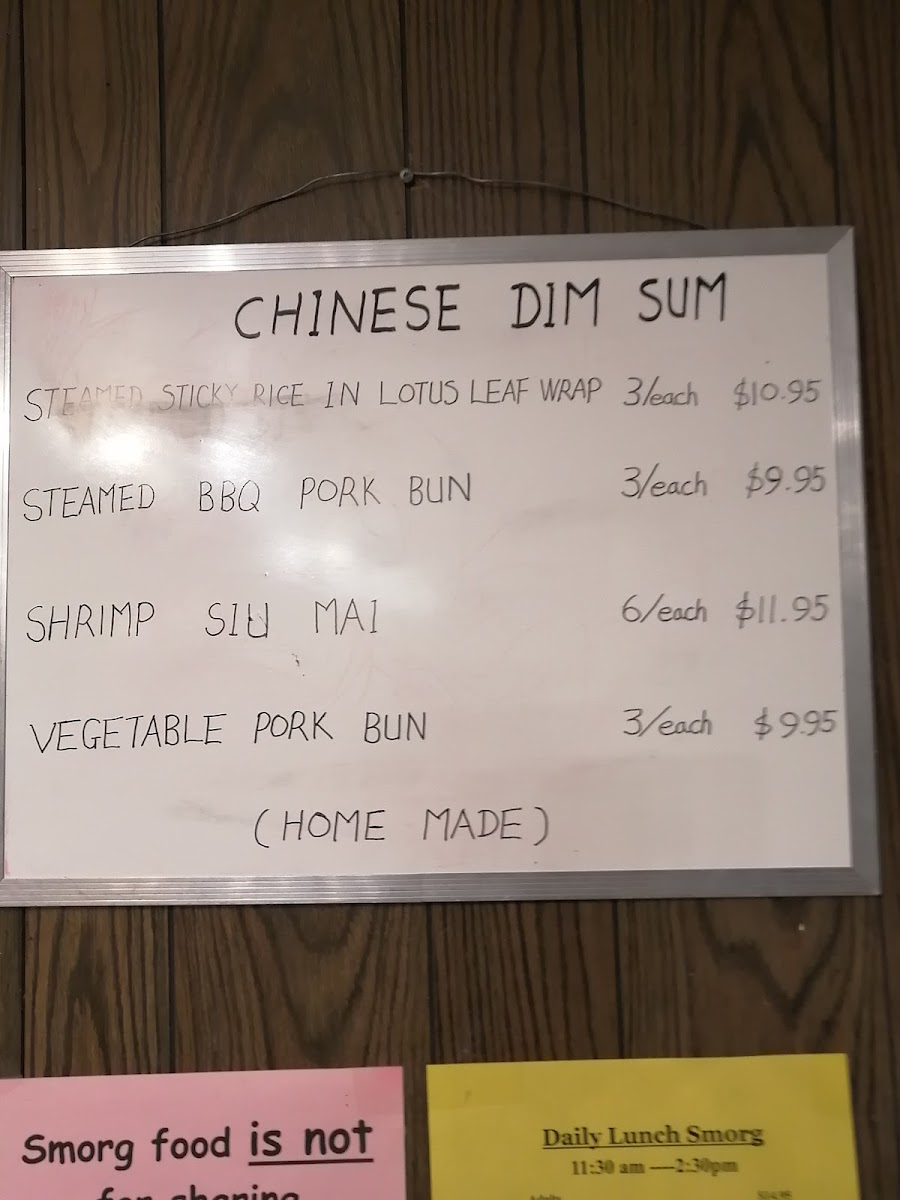 CHINESE DIM SUM
STEAMED STICKY RICE IN LOTUS LEAF WRAP 3/each $10.95
STEAMED BBQ PORK BUN 3/each $9.95
SHRIMP SIU MAI 6/each $11.95
VEGETABLE PORK BUN 3/each $9.95
(HOME MADE)
Smorg food is not
for sharing
Daily Lunch Smorg
11:30 am ----2:30pm